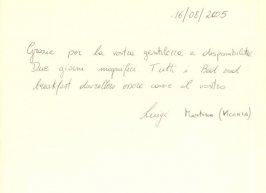 16/08/2005
Grazie per la vostra gentilezza e disponibilità
Due giorni magnifici Tutti i Bed and
breakfast dovrebbero essere come il vostro
Luigi Martina (Monza)